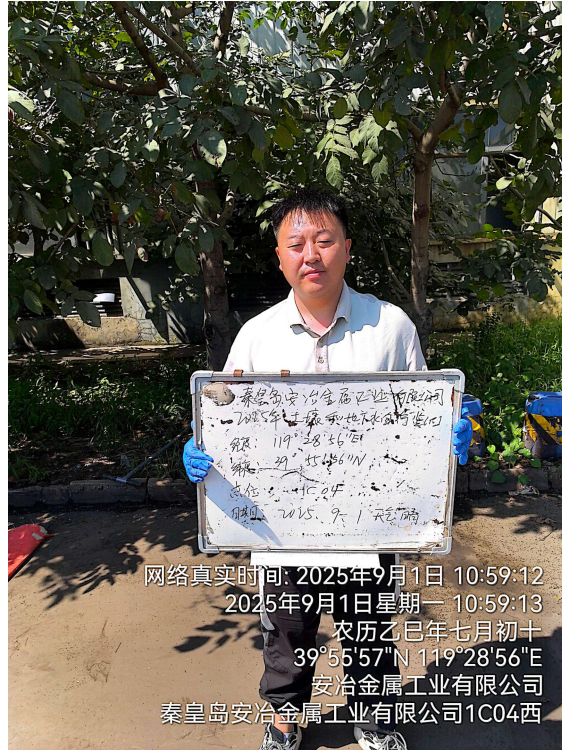 秦皇岛安冶金属工业有限公司
2025年土壤和地下水自行监测
经度: 119°28′56″E
纬度: 39°55′56″N
点位: 1C04
日期: 2025.9.1 天气: 晴
网络真实时间: 2025年9月1日 10:59:12
2025年9月1日星期一 10:59:13
农历乙巳年七月初十
39°55'57"N 119°28'56"E
安冶金属工业有限公司
秦皇岛安冶金属工业有限公司1C04西